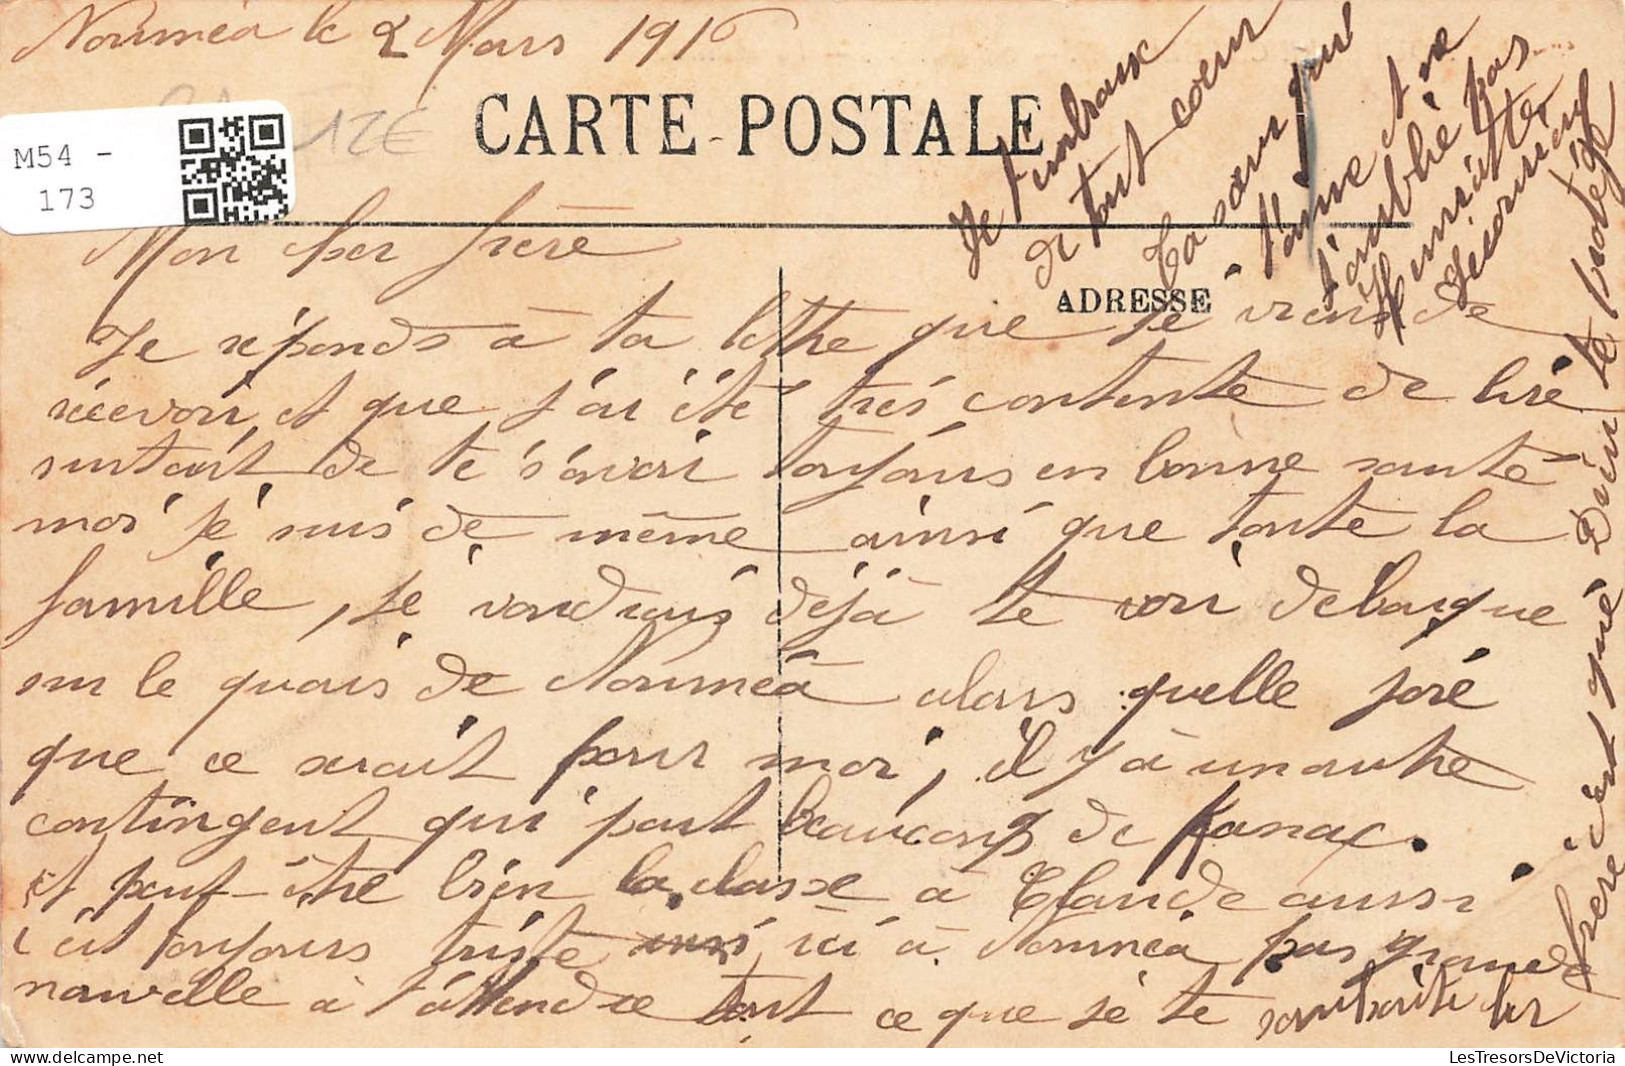 Nouméa le 2 Mars 1916
M54 -
173
CARTE POSTALE
ADRESSE
Mon cher frère
Je réponds à ta lettre que je viens de
récevoir et que j'ai été très contente de liré
surtout de te s'avoir toujours en bonne santé
moi je suis de même ainsi que toute la
famille, je voudrais déjà te voir débarque
sur le quais de Nouméa alors quelle joré
que ce serait pour moi, il y à un autre
contingent qui part beaucoups de Kanac.
et peut-être bien la classe à Claude aussi
c'est toujours triste ici à Nouméa pas grande
nouvelle à t'attendre tout ce que je te souhaite cher
frère c'est qué Dieu te protège
Je t'embrasse
de tout coeur
Ta sœur qui
t'aime et ne
t'oublié pas
Henriette